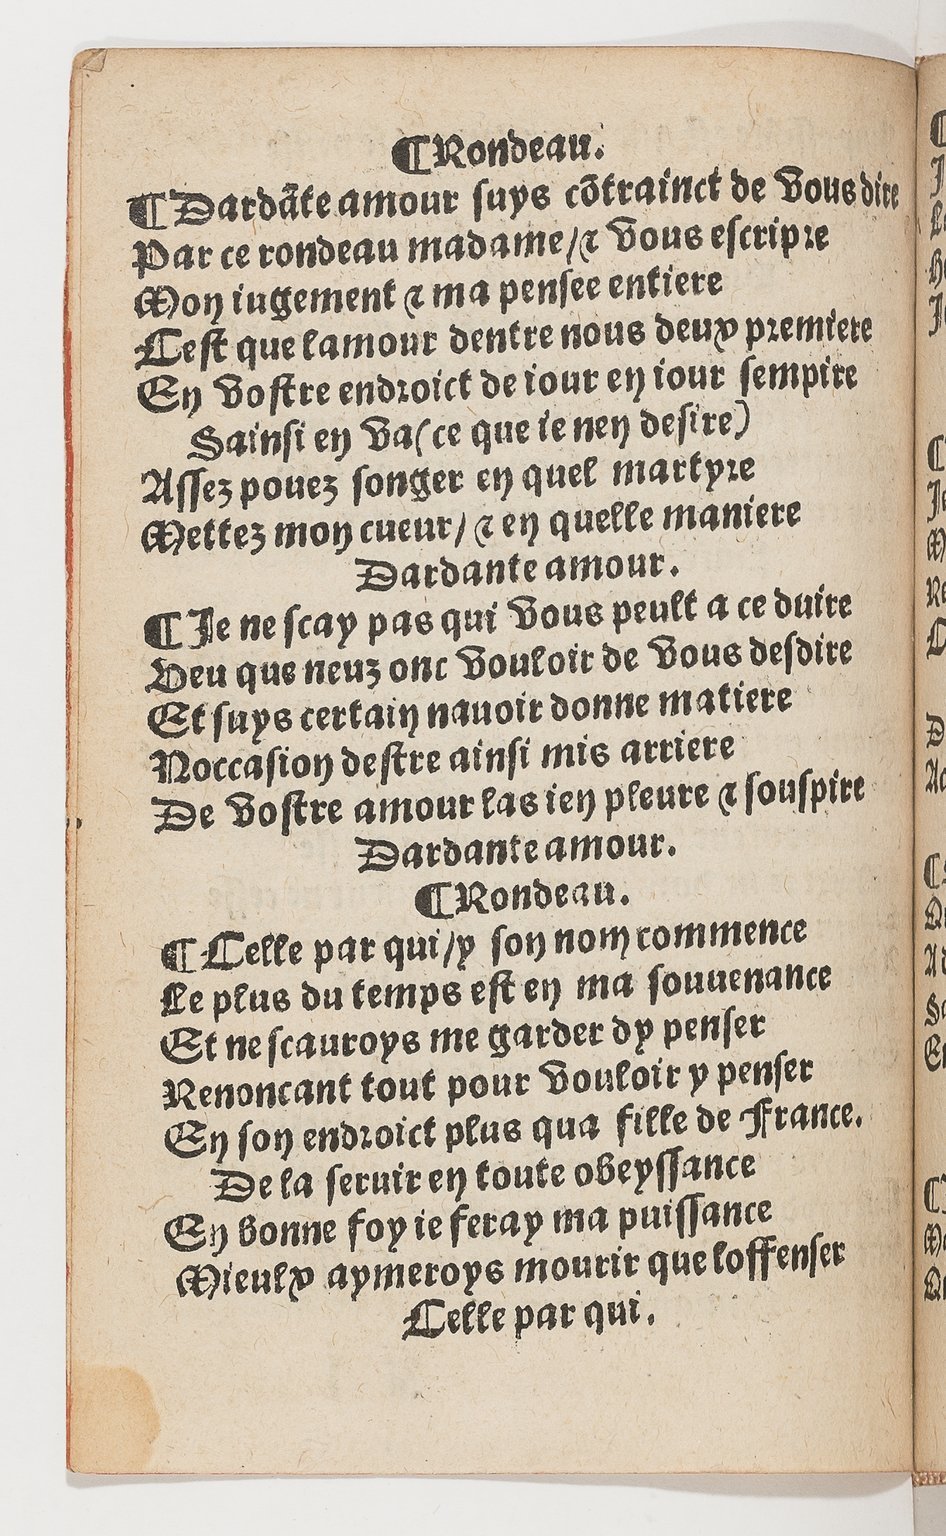 ¶Rondeau.
¶Dardãte amour suys cõtrainct de vous dire
Par ce rondeau madame/⁊ vous escripre
Mon iugement ⁊ ma pensee entiere
Cest que lamour dentre nous deux premiere
En vostre endroict de iour en iour sempire
Sainsi en va(ce que ie nen desire)
Assez pouez songer en quel martyre
Mettez mon cueur/⁊ en quelle maniere
Dardante amour.
¶Je ne scay pas qui vous peult a ce duire
Veu que neuz onc vouloir de vous desdire
Et suys certain nauoir donne matiere
Noccasion destre ainsi mis arriere
De vostre amour las ien pleure ⁊ souspire
Dardante amour.
¶Rondeau.
¶Celle par qui/y son nom commence
Le plus du temps est en ma souuenance
Et ne scauroys me garder dy penser
Renoncant tout pour vouloir y penser
En son endroict plus qua fille de France.
De la seruir en toute obeyssance
En bonne foy ie feray ma puissance
Mieulx aymeroys mourir que loffenser
Celle par qui.